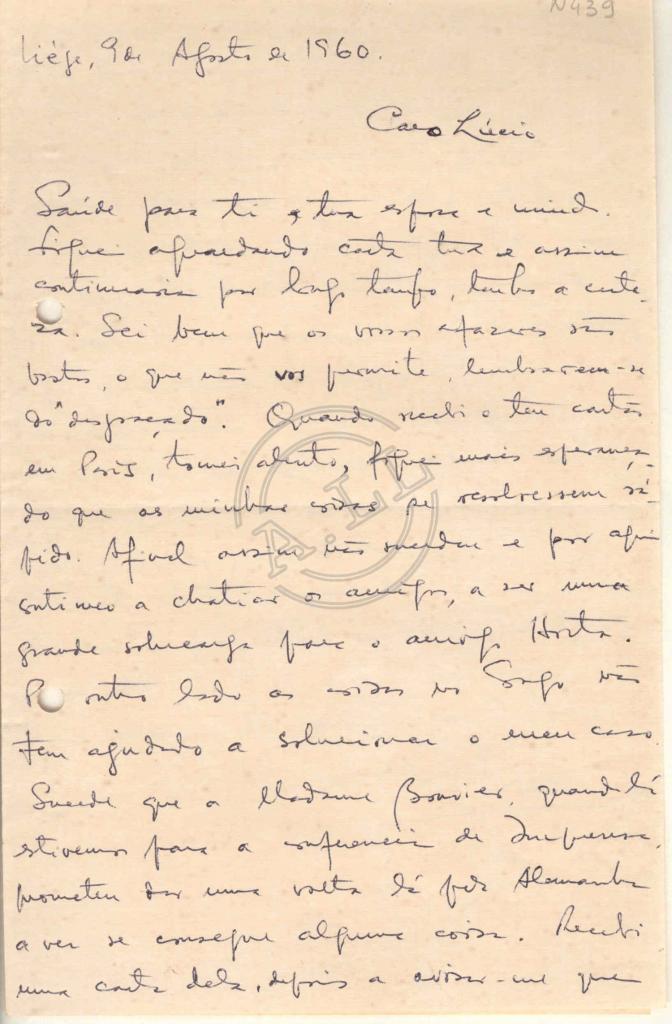 N439
Liége, 9 de Agosto de 1960.
Caro Lúcio
Saúde para ti e tua esposa e miud.
Fiquei aguardando carta tua e assim
continuaria por longo tempo, tenho a certe-
za. Sei bem que os vossos afazeres são
bastos, o que não vos permite, lembrarem-se
do "desgraçado". Quando recebi o teu cartão
em Paris, tomei alento, fiquei mais esperança-
do que as minhas coisas se resolvessem rá-
pido. Afinal assim não sucedeu e por aqui
continuo a chatiar os amigos, a ser uma
grande sobrecarga para o amigo Horta.
Por outro lado as coisas no Congo não
tem ajudado a solucionar o meu caso.
Sucede que a Madame Bouvier, quando lá
estivemos para a conferencia de Imprensa,
prometeu dar uma volta lá pela Alemanha
a ver se consegue alguma coisa. Recebi
uma carta dela, depois a avisar-me que
A.LL